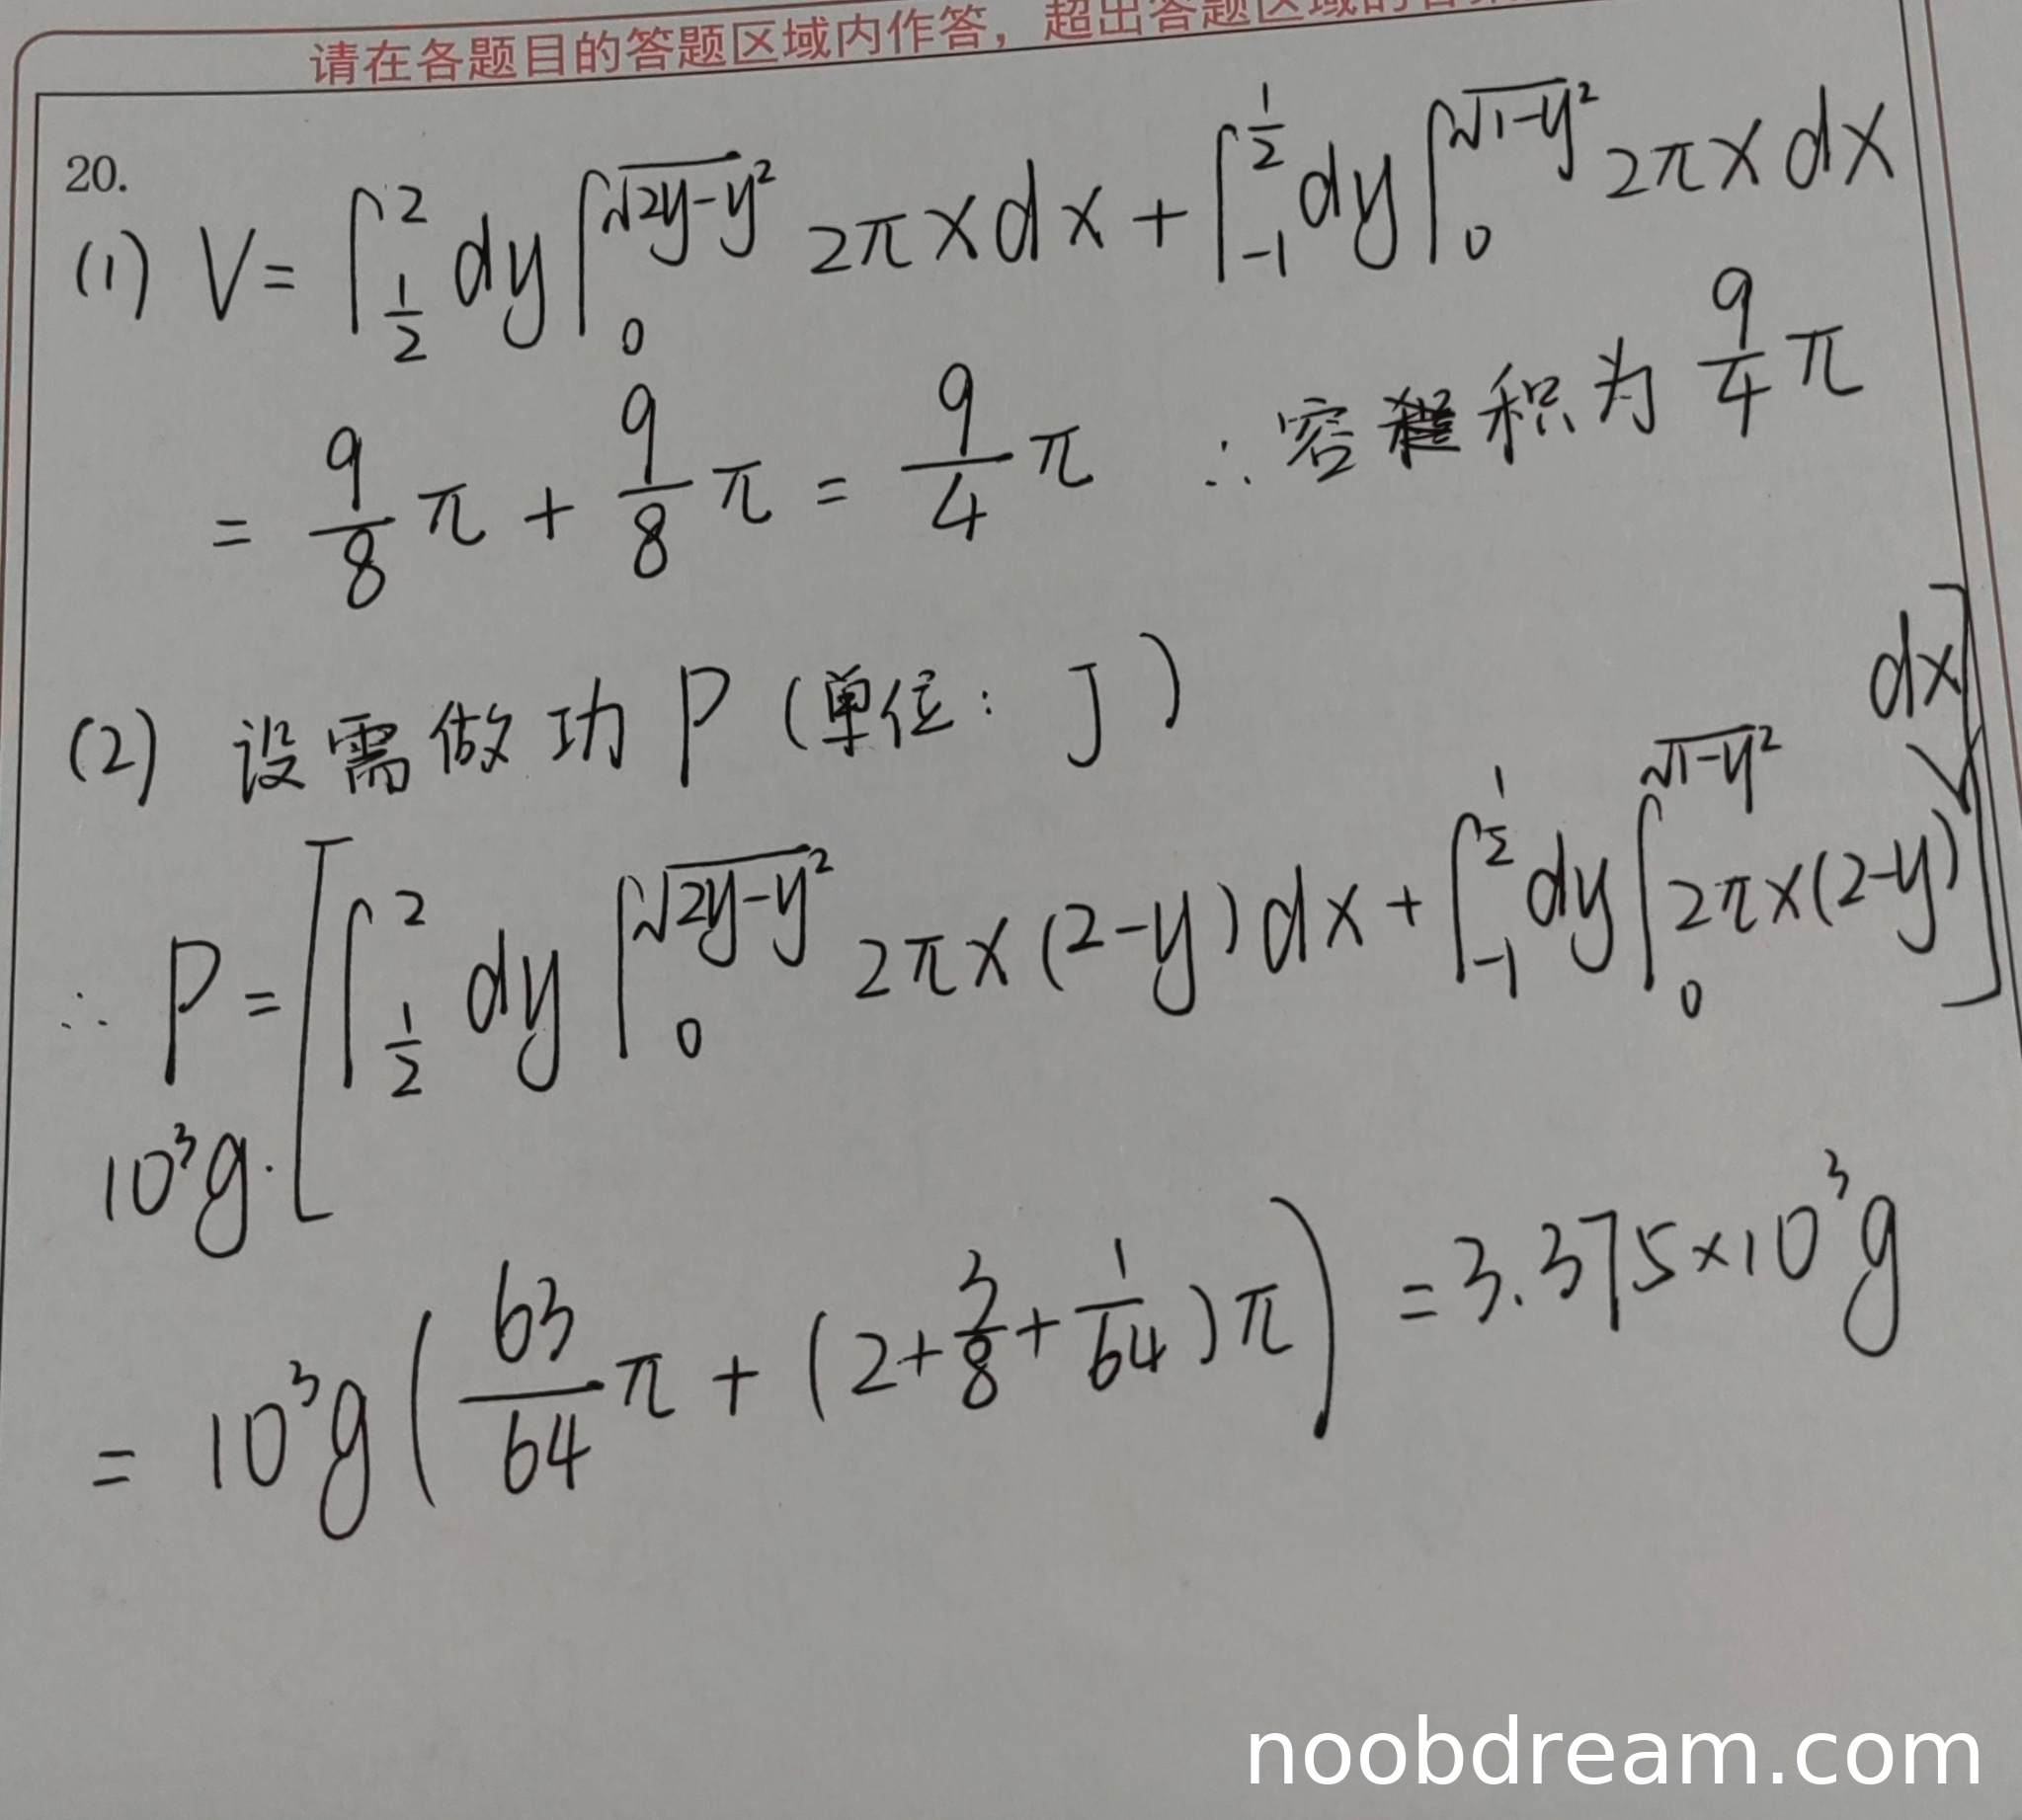 请在各题目的答题区域内作答，超出答题区域的答案
20.
(1) V = ∫_{1/2}^{2} dy ∫_{0}^{√(2y-y²)} 2πx dx + ∫_{-1}^{1/2} dy ∫_{0}^{√(1-y²)} 2πx dx
= 9/8 π + 9/8 π = 9/4 π ∴ 容积为 9/4 π
(2) 设需做功 P (单位: J)
∴ P = [∫_{1/2}^{2} dy ∫_{0}^{√(2y-y²)} 2πx(2-y) dx + ∫_{-1}^{1/2} dy ∫_{0}^{√(1-y²)} 2πx(2-y) dx]
10³g·
= 10³g (63/64 π + (2 + 3/8 + 1/64) π) = 3.375×10³g
noobdream.com